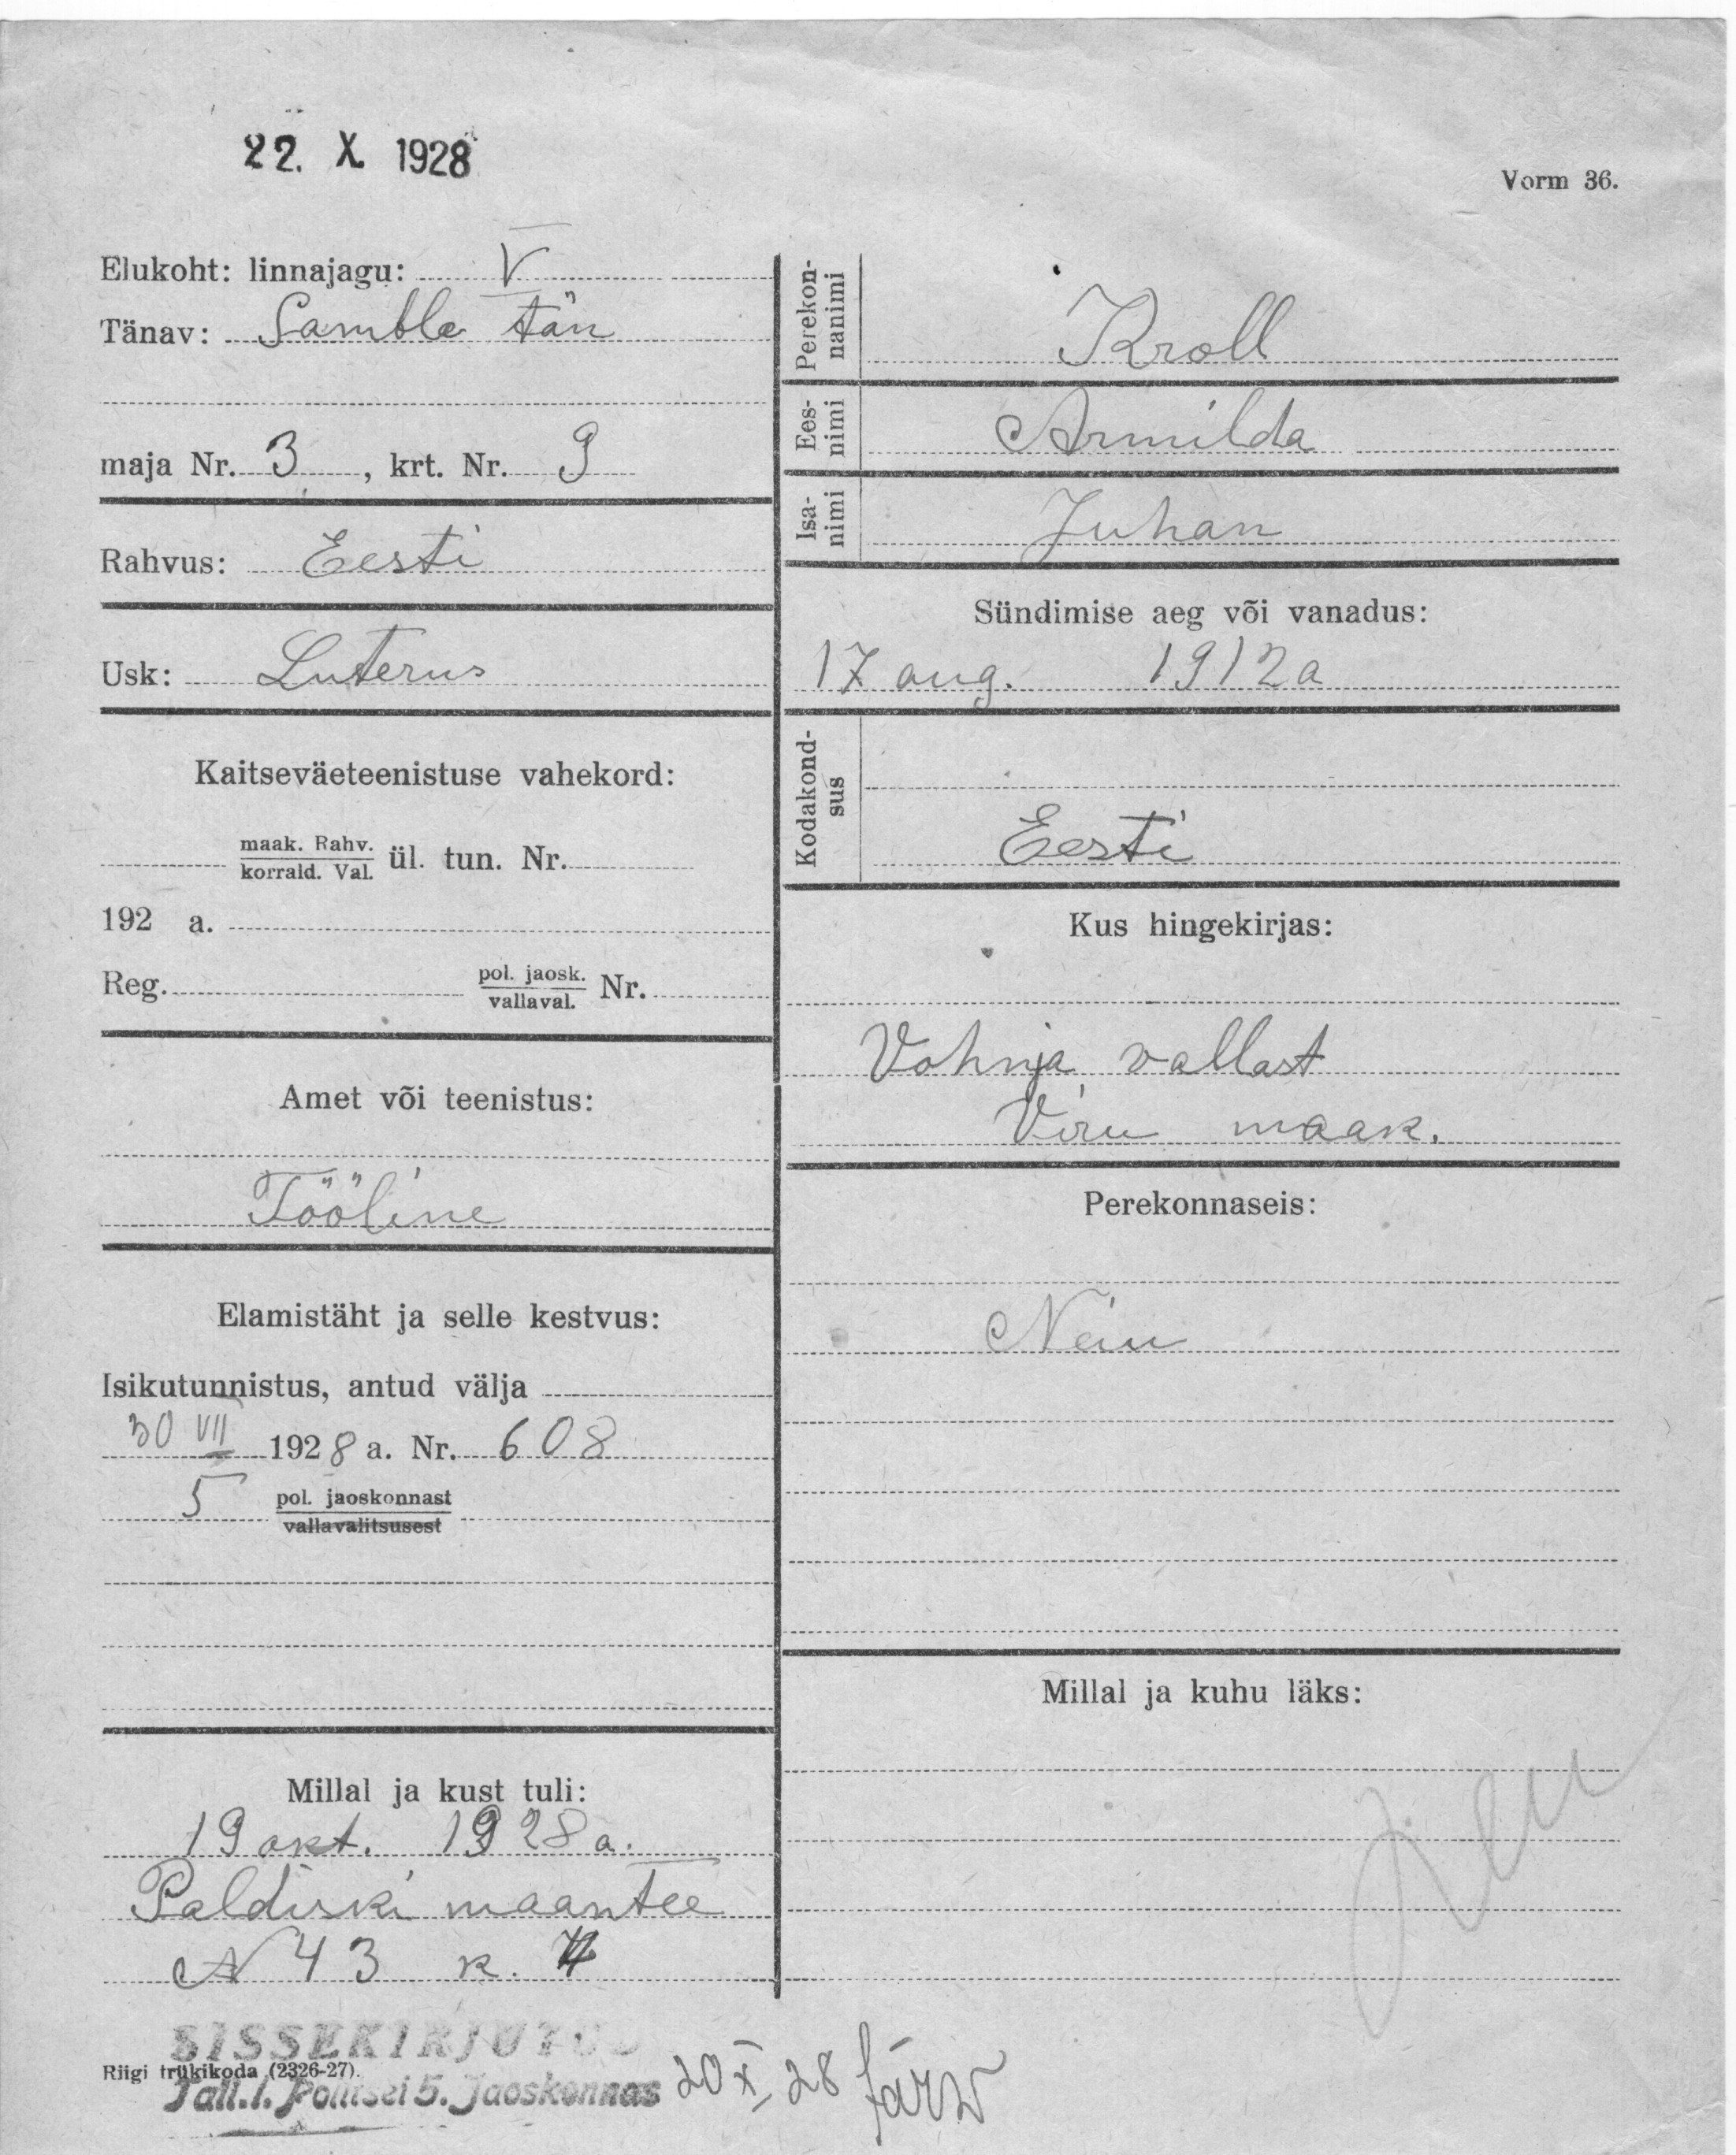 22. X. 1928
Vorm 36.
Elukoht: linnajagu: V
Tänav: Sambla tän
maja Nr. 3, krt. Nr. 9
Rahvus: Eesti
Usk: Luterus
Kaitseväeteenistuse vahekord:
maak. Rahv.
korrald. Val. ül. tun. Nr.
192 a.
Reg. pol. jaosk.
vallaval. Nr.
Amet või teenistus:
Tööline
Elamistäht ja selle kestvus:
Isikutunnistus, antud välja
30 VII 1928 a. Nr. 608
5 pol. jaoskonnast
vallavalitsusest
Millal ja kust tuli:
19 okt. 1928 a.
Paldiski maantee
N 43 k. 4
Perekonnanimi
Kroll
Eesnimi
Armilda
Isanimi
Juhan
Sündimise aeg või vanadus:
17 aug. 1912 a
Kodakondsus
Eesti
Kus hingekirjas:
Vohnja vallast
Viru maak.
Perekonnaseis:
Neiu
Millal ja kuhu läks:
SISSEKIRJUTUD
Riigi trükikoda (2326-27).
Tall.l. Politsei 5. Jaoskonnas 20 X 28